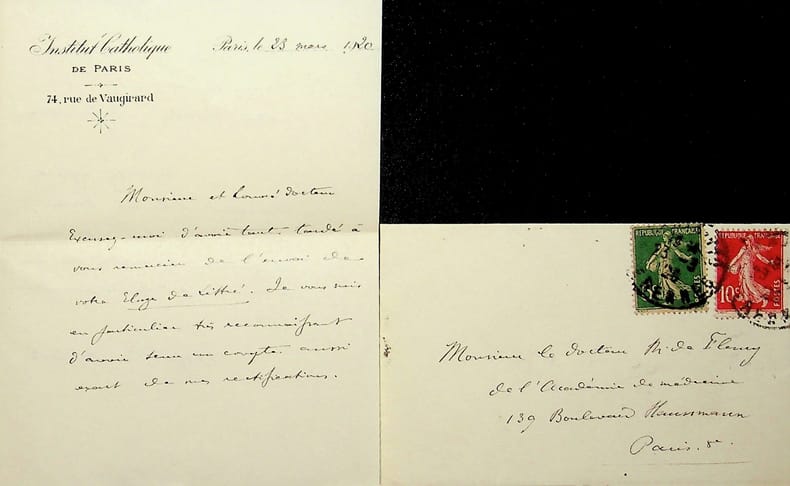 Institut Catholique
DE PARIS
74, rue de Vaugirard
Paris, le 23 mars 1920
Monsieur et honoré docteur
Excusez-moi d'avoir tant tardé à
vous remercier de l'envoi de
votre Eloge de Littré. Je vous suis
en particulier très reconnaissant
d'avoir tenu un compte aussi
exact de mes rectifications.
REPUBLIQUE FRANÇAISE
REPUBLIQUE FRANÇAISE
10c
POSTES
Monsieur le docteur M. de Fleury
de l'Académie de médecine
139 Boulevard Haussmann
Paris. 8e.